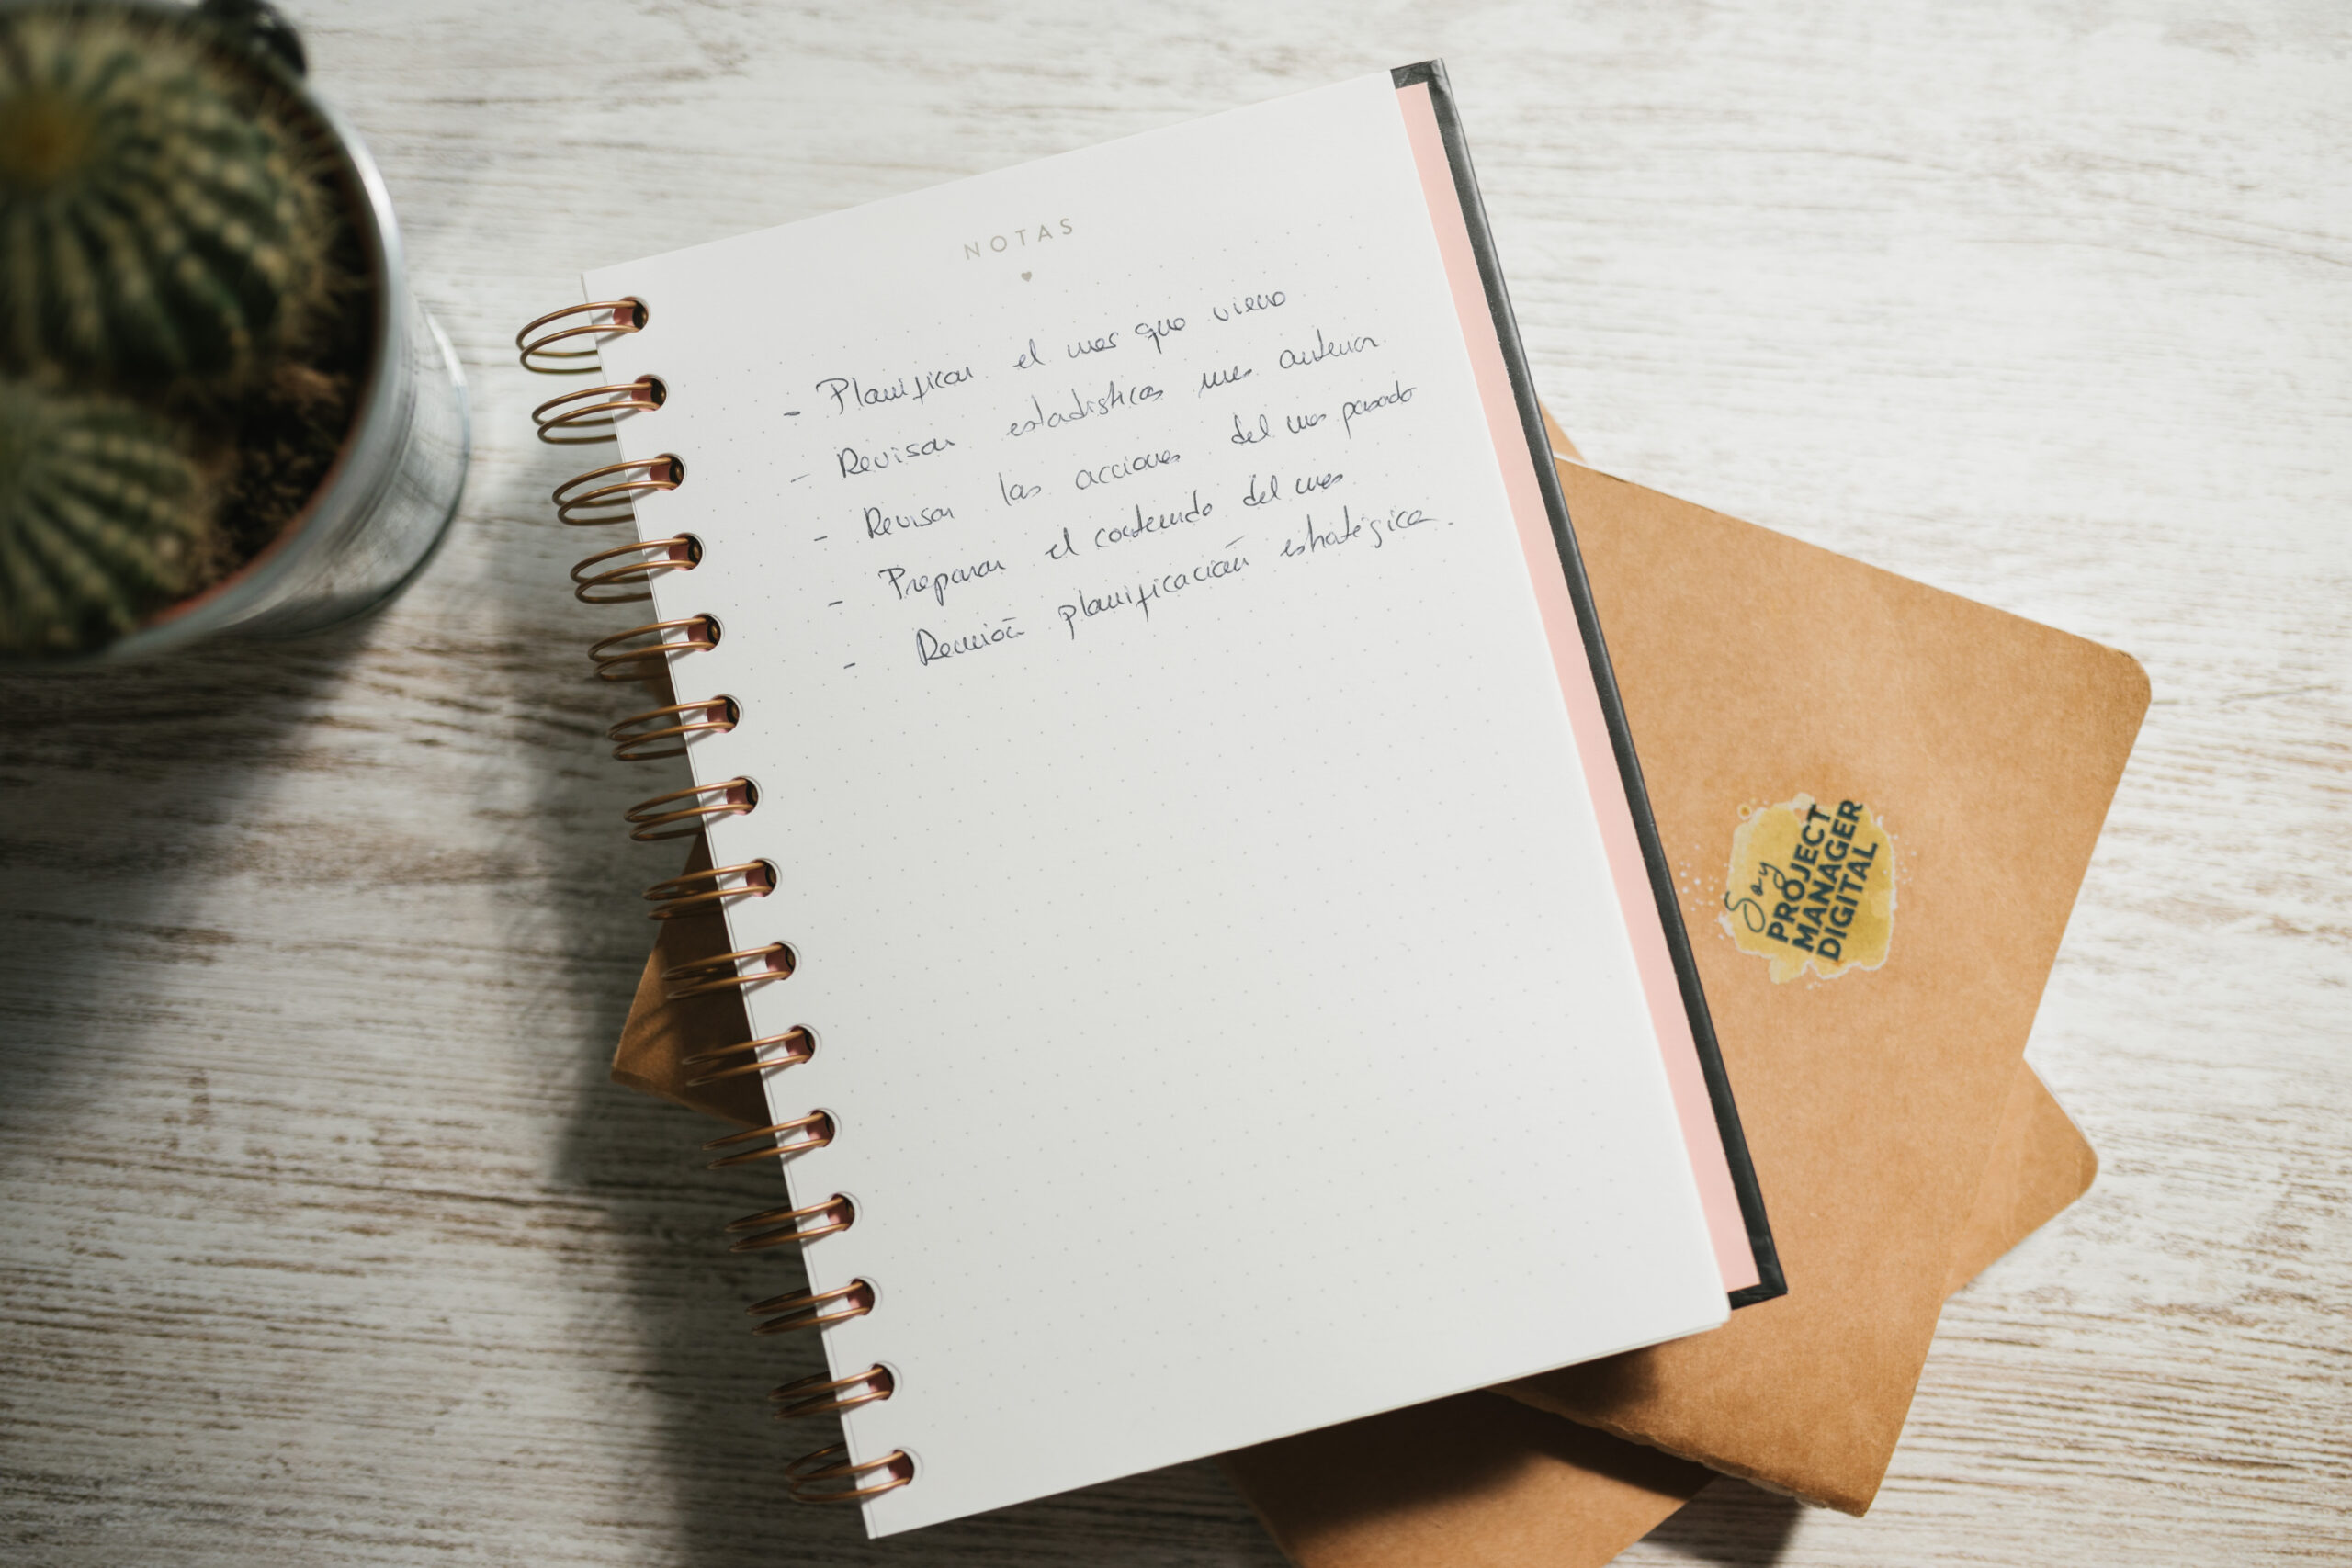 NOTAS
- Planificar el mes que viene
- Revisar estadísticas mes anterior
- Revisar las acciones del mes pasado
- Preparar el contenido del mes
- Reunión planificación estratégica.
Soy
PROJECT
MANAGER
DIGITAL